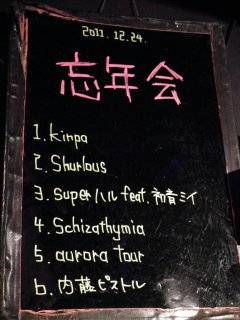 2011.12.24.
忘年会
1. kinpa
2. Shurlous
3. superハル feat. 初音ミイ
4. Schizathymia
5. aurora tour
6. 内藤ピストル